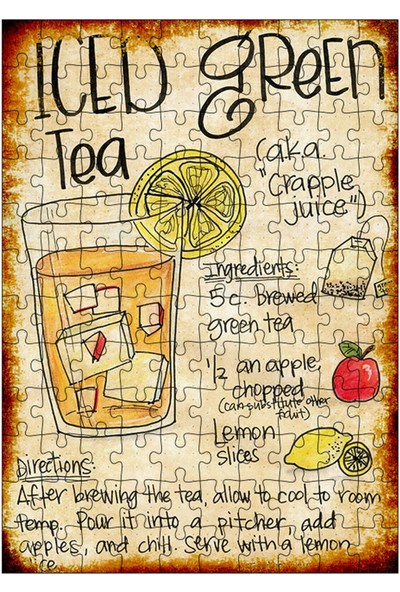 ICED green
Tea
(aka.
"Crapple
juice")
Ingredients:
5 c. Brewed
green tea
1/2 an apple,
chopped
(can substitute other
fruit)
Lemon
slices
Directions:
After brewing the tea, allow to cool to room
temp. Pour it into a pitcher, add
apples, and chill. Serve with a lemon
slice.